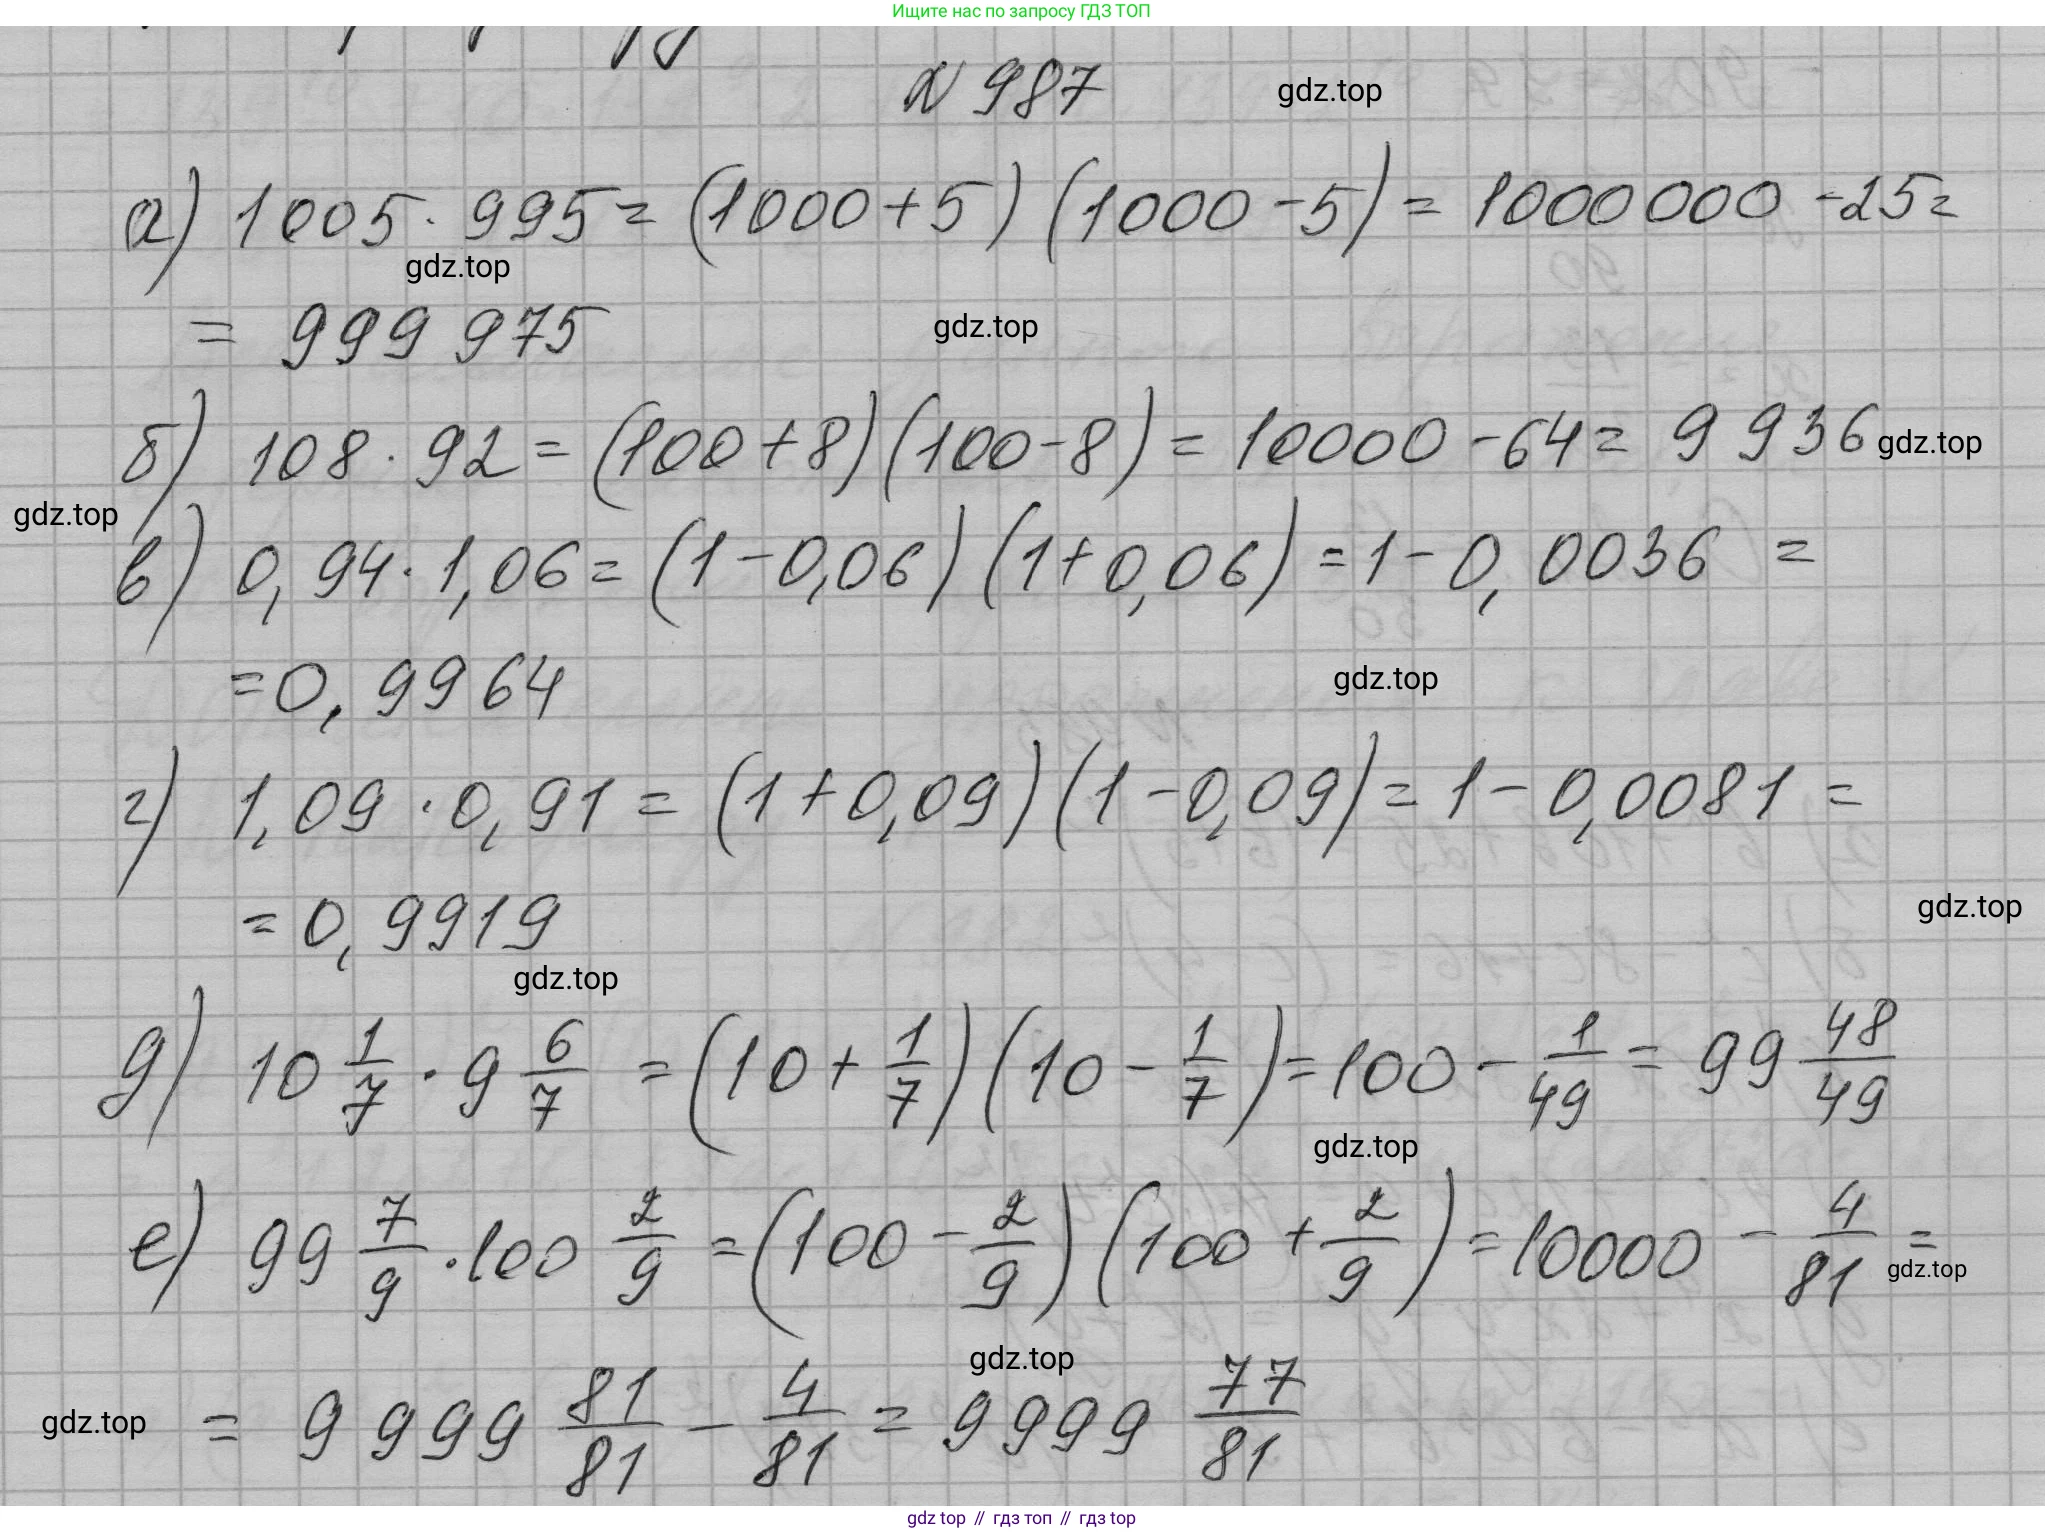 Ищите нас по запросу ГДЗ ТОП
№ 987
gdz.top
а) 1005 · 995 = (1000 + 5) (1000 - 5) = 1000000 - 25 =
gdz.top
= 999 975
gdz.top
б) 108 · 92 = (100 + 8) (100 - 8) = 10000 - 64 = 9 936
gdz.top
gdz.top
в) 0,94 · 1,06 = (1 - 0,06) (1 + 0,06) = 1 - 0,0036 =
= 0,9964
gdz.top
г) 1,09 · 0,91 = (1 + 0,09) (1 - 0,09) = 1 - 0,0081 =
= 0,9919
gdz.top
gdz.top
д) 10 1/7 · 9 6/7 = (10 + 1/7) (10 - 1/7) = 100 - 1/49 = 99 48/49
gdz.top
е) 99 7/9 · 100 2/9 = (100 - 2/9) (100 + 2/9) = 10000 - 4/81 =
gdz.top
gdz.top
gdz.top
= 9 999 81/81 - 4/81 = 9999 77/81
gdz top // гдз топ // гдз top